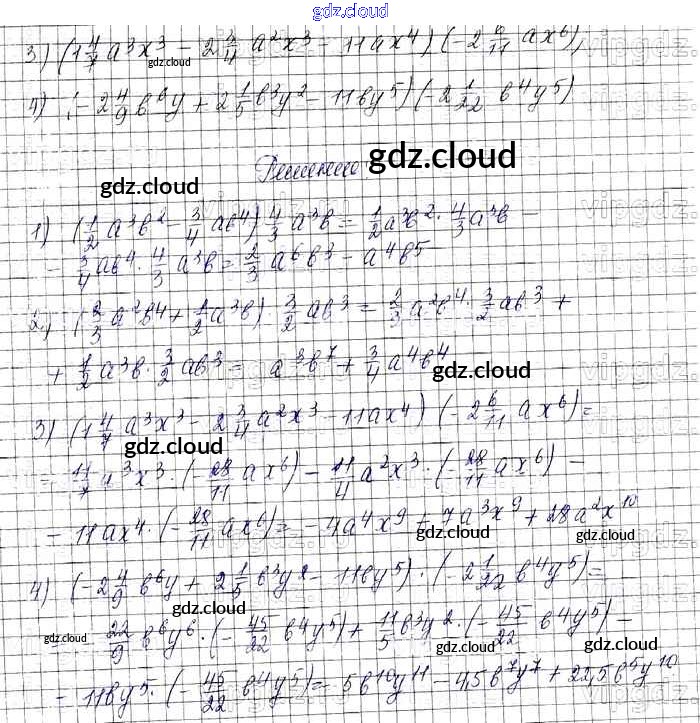 gdz.cloud
3) (1 4/7 a³x³ - 2 3/4 a²x³ - 11ax⁴) (-2 6/11 ax⁶),
gdz.cloud
4) (-2 4/9 b⁶y + 2 1/5 b³y² - 11by⁵) (-2 1/22 b⁴y⁵)
Решение
gdz.cloud
gdz.cloud
1) (1/2 a³b² - 3/4 ab⁴) 4/3 a³b = 1/2 a³b² · 4/3 a³b -
- 3/4 ab⁴ · 4/3 a³b = 2/3 a⁶b³ - a⁴b⁵
2) (2/3 a²b⁴ + 1/2 a³b) · 3/2 ab³ = 2/3 a²b⁴ · 3/2 ab³ +
+ 1/2 a³b · 3/2 ab³ = a³b⁷ + 3/4 a⁴b⁴
gdz.cloud
gdz.cloud
3) (1 4/7 a³x³ - 2 3/4 a²x³ - 11ax⁴) (-2 6/11 ax⁶) =
gdz.cloud
= 11/7 a³x³ · (-28/11 ax⁶) - 11/4 a²x³ · (-28/11 ax⁶) -
gdz.cloud
- 11ax⁴ · (-28/11 ax⁶) = -4a⁴x⁹ + 7a³x⁹ + 28a²x¹⁰
gdz.cloud
gdz.cloud
4) (-2 4/9 b⁶y + 2 1/5 b³y² - 11by⁵) · (-2 1/22 b⁴y⁵) =
gdz.cloud
= - 22/9 b⁶y⁶ · (-45/22 b⁴y⁵) + 11/5 b³y² · (-45/22 b⁴y⁵) -
gdz.cloud
gdz.cloud
- 11by⁵ · (-45/22 b⁴y⁵) = 5b¹⁰y¹¹ - 4,5b⁷y⁷ + 22,5b⁵y¹⁰
gdz.cloud
gdz.cloud